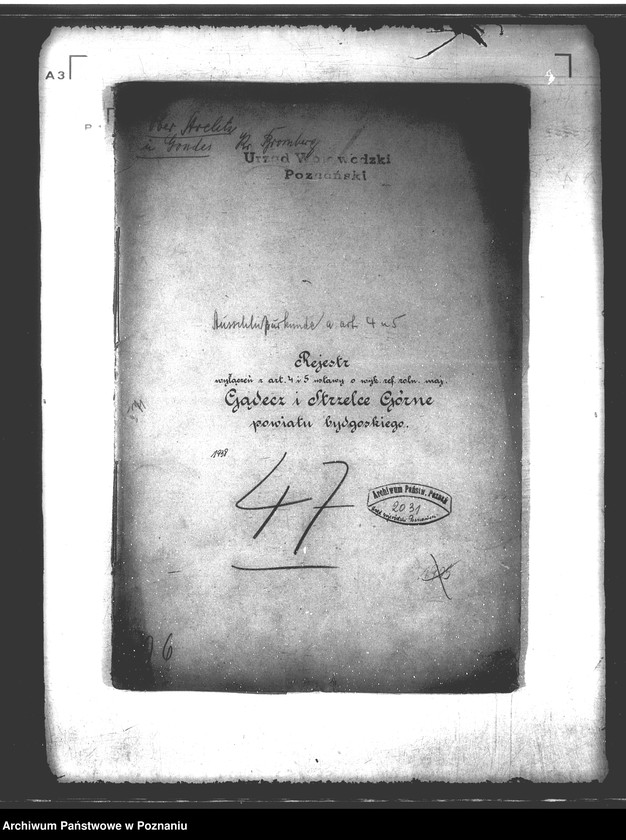 A3
Ober Strelitz
in Gondes Kr. Bromberg
Urząd Wojewódzki
Poznański
a. art. 4 u 5
Rejestr
wyłączeń z art. 4 i 5 ustawy o wyk. ref. roln. maj.
Gądecz i Strzelce Górne
powiatu bydgoskiego.
1938
47
Archiwum Państw. Poznań
2031
6
Archiwum Państwowe w Poznaniu